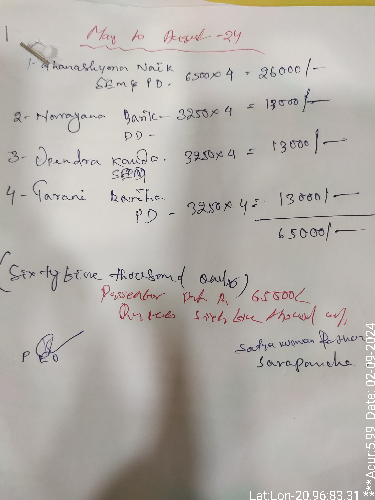 May to August -24
1- Ghanashyama Naik 6500x4 = 26000/-
SEM & PD.
2- Narayana Barik- 3250x4 = 13000/-
PD -
3- Upendra Kanda. 3250x4 = 13000/-
4- Tarani Barika.
PD - 3250x4 = 13000/-
65000/-
(Sixty five thousand only)
65000/-
Rupees Sixty five thousand only
Sarapancha
Lat:Lon-20.96:83.31
***Acur:5.99 Date: 02-09-2024